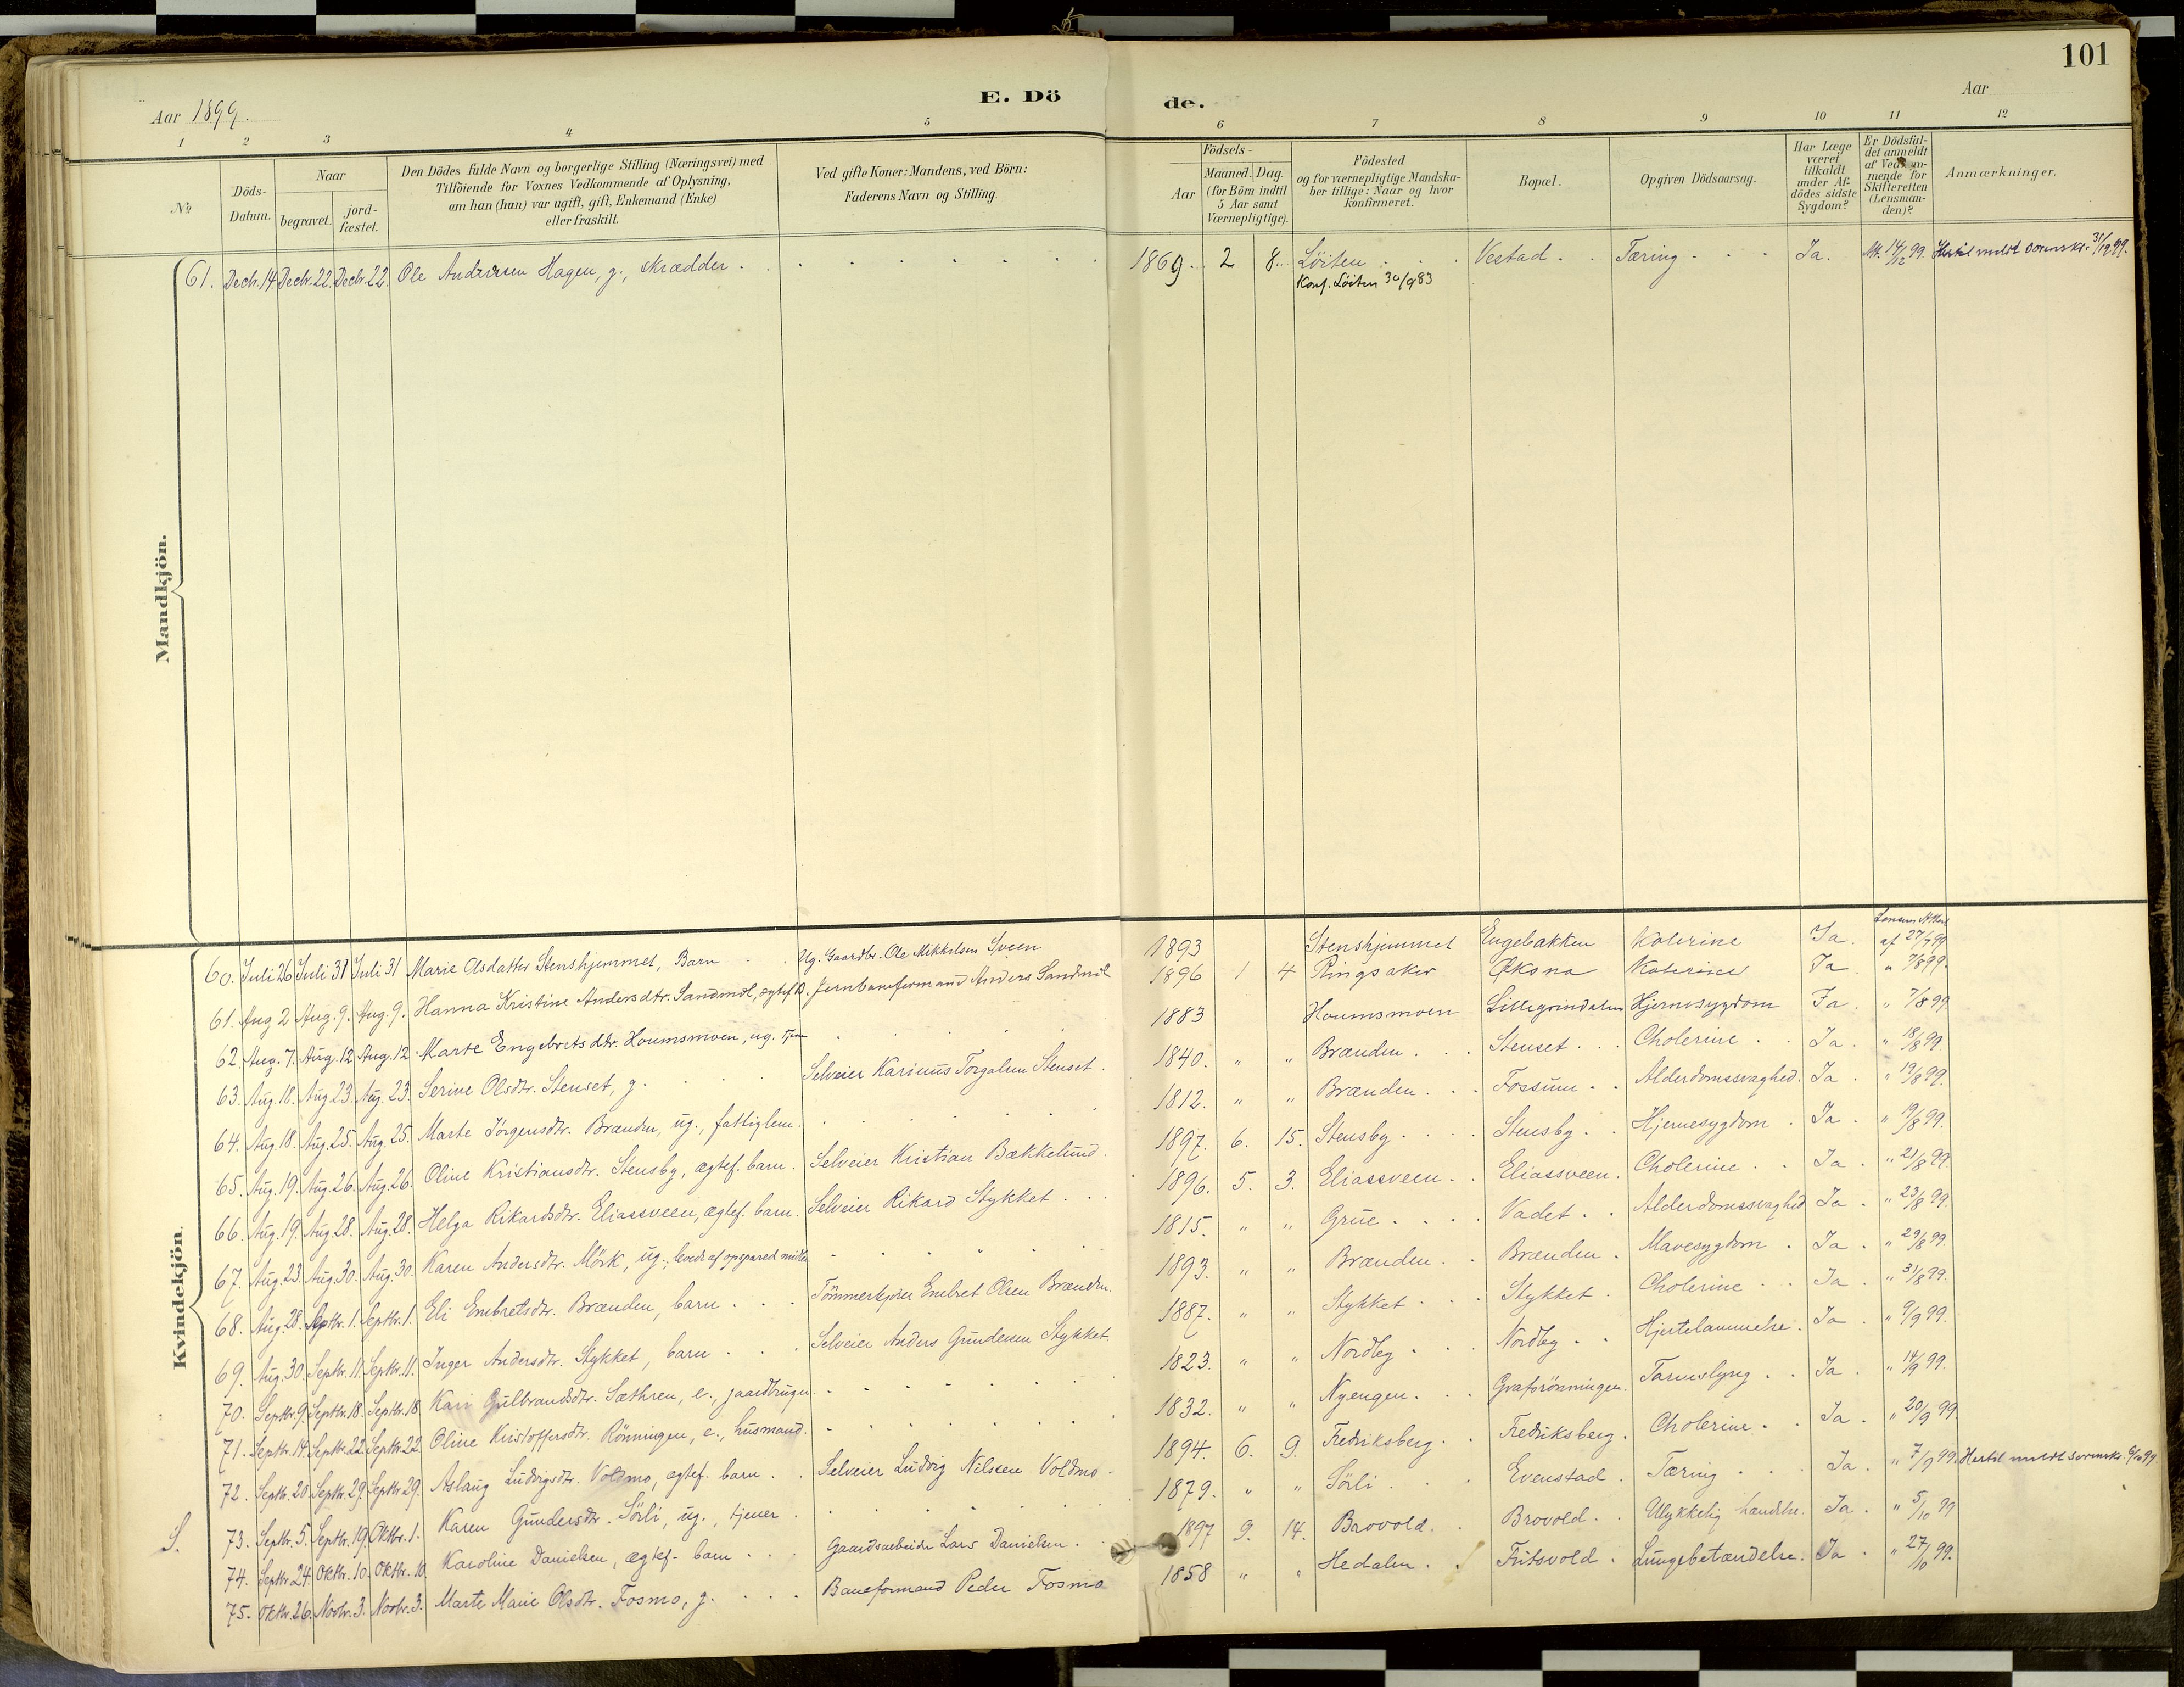 101
Aar 1899.
E. Dö
de.
Aar
1 2 3 4 5 6 7 8 9 10 11 12
No
Döds-Datum.
Naar
begravet.
jord-fæstet.
Den Dödes fulde Navn og borgerlige Stilling (Næringsvei) med
Tilföiende for Voxnes Vedkommende af Oplysning,
om han (hun) var ugift, gift, Enkemand (Enke)
eller fraskilt.
Ved gifte Koner: Mandens, ved Börn:
Faderens Navn og Stilling.
Födsels-
Aar
Maaned. Dag.
(for Börn indtil
5 Aar samt
Værnepligtige).
Födested
og for værnepligtige Mandska-
ber tillige: Naar og hvor
konfirmeret.
Bopæl.
Opgiven Dödsaarsag.
Har Læge
været
tilkaldt
under Af-
dödes sidste
Sygdom?
Er Dödsfal-
det anmeldt
af Vedkom-
mende for
Skifteretten
(Lensman-
den)?
Anmærkninger.
Mandkjön.
61. Decbr. 14. Decbr. 22. Decbr. 22. Ole Andersen Hagen, g., skrædder. 1869. 2 8. Löiten Vestad. Tæring Ja. Att. 14/12 99. Hertil meldt 31/12 99.
Konf. Löiten 30/9 83
Kvindekjön.
60. Juli 26 Juli 31 Juli 31 Marie Olsdatter Stenshjemmet, Barn Ug. Gaardbr. Ole Mikkelsen Sveen 1893 Stenshjemmet Engebakken Kolerine Ja. af 27/7 99
61. Aug 2 Aug. 9. Aug. 9. Hanna Kristine Andersdtr. Sandmæl, ægtef. B. Jernbaneformand Anders Sandmæl 1896 1 4 Ringsaker Øksna Kolerine Ja " 7/8 99.
62. Aug. 7. Aug. 12 Aug. 12. Marte Engebretsdtr. Houmsmoen, ug. tjen 1883 Houmsmoen Lillegrindalen Hjernesygdom Ja. " 7/8 99
63. Aug. 18. Aug 23. Aug. 23. Serine Olsdtr. Stenset, g. Selveier Karinus Torgalsen Stenset. 1840. " " Brænden. Stenset. Cholerine. Ja. " 18/8 99.
64. Aug. 18. Aug. 25. Aug. 25. Marte Jörgensdtr. Brænden, ug., fattiglem. 1812. " " Brænden. Fossum. Alderdomssvaghed. Ja. " 19/8 99.
65. Aug. 19. Aug. 26. Aug. 26. Oline Kristiansdtr. Stensby, ægtef. barn. Selveier Kristian Bækkelund. 1897. 6. 15. Stensby. Stensby. Hjernesygdom. Ja. " 19/8 99.
66. Aug. 19. Aug. 28. Aug. 28. Helga Rikardsdtr. Eliassveen, ægtef. barn. Selveier Rikard Stykket. 1896. 5. 3. Eliassveen. Eliassveen. Cholerine. Ja. " 21/8 99.
67. Aug. 23. Aug. 30. Aug. 30. Karen Andersdtr. Mörk, ug.; levede af opspared midler 1815. " " Grue. Vadet. Alderdomssvaghed Ja. " 23/8 99.
68. Aug. 28. Septbr. 1. Septbr. 1. Eli Embretsdtr. Brænden, barn. Tömmerkjører Embret Olsen Brænden. 1893. " " Brænden. Brænden. Mavesygdom. Ja. " 29/8 99.
69. Aug. 30. Septbr. 11. Septbr. 11. Inger Andersdtr. Stykket, barn. Selveier Anders Gundersen Stykket. 1887. " " Stykket. Stykket. Cholerine. Ja. " 31/8 99.
70. Septbr. 9. Septbr. 18. Septbr. 18 Kari Gulbrandsdtr. Sæthren, e., gaardbruger 1823. " " Nordby. Nordby. Hjertelammelse. Ja. " 9/9 99.
71. Septbr. 14. Septbr. 22. Septbr. 22 Oline Kristoffersdtr. Rönningen, e., husmand. 1832. " " Nyengen. Grafsrönningen. Tarmslyng. Ja. " 14/9 99.
72. Septbr. 20. Septbr. 29. Septbr. 29. Aslaug Ludvigsdtr. Voldmo, ægtef. barn. Selveier Ludvig Nilssen Voldmo. 1894. 6. 9. Fredriksberg. Fredriksberg. Cholerine. Ja. " 20/9 99.
S. 73. Septbr. 5. Septbr. 19. Oktbr. 1. Karen Gundersdtr. Sörli, ug., tjener. 1879. " " Sörli. Evenstad. Tæring Ja. " 7/9 99. Hertil meldt
74. Septbr. 24. Oktbr. 10. Oktbr. 10 Karoline Danielsen, ægtef. barn. Gaardsarbeider Lars Danielsen. 1897 9. 14. Brovold. Brovold. Ulykkelig hændelse. Ja. " 5/10 99
75. Oktbr. 26. Novbr. 3. Novbr. 3. Marte Marie Olsdtr. Fosmo, g. Baneformand Peder Fosmo 1858 " " Hedalen. Fritsvold. Lungebetændelse. Ja. " 27/10 99.